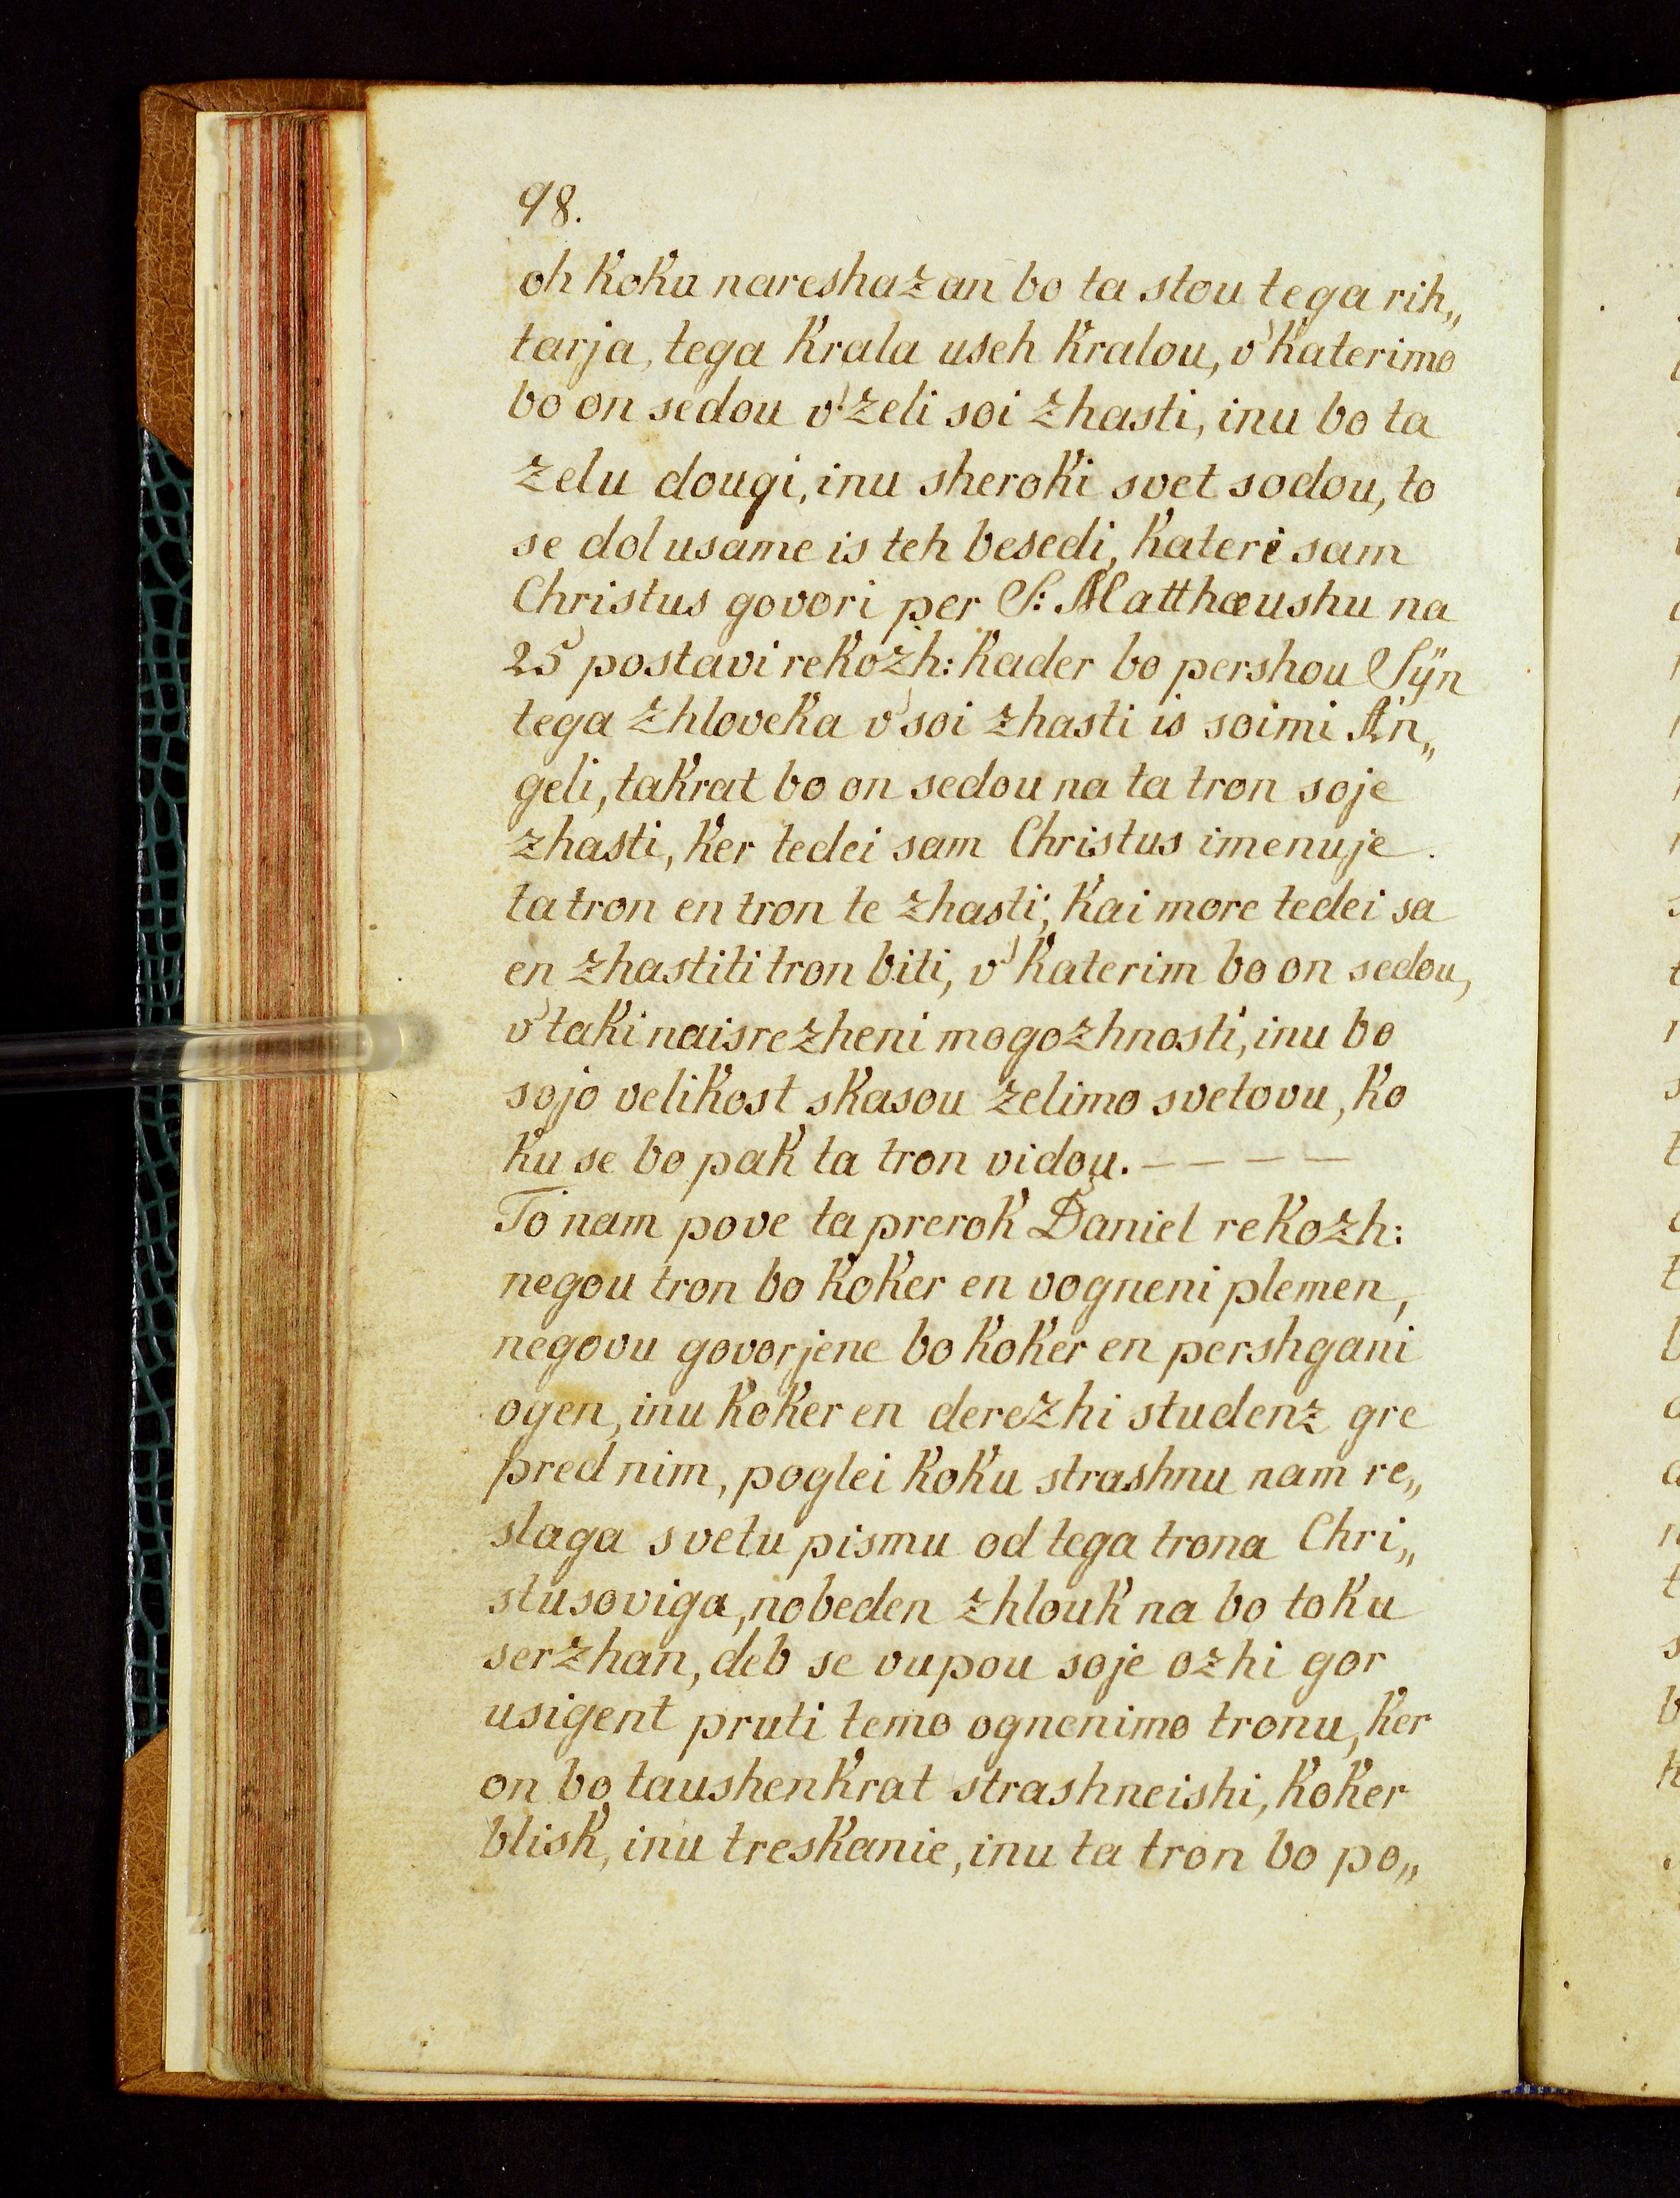 98.
oh koku nareshazan bo ta stou tega rih„
tarja, tega krala useh kralou, v' katerimo
bo on sedou v' zeli soi zhasti, inu bo ta
zelu dougi, inu sheroki svet sodou, to
se dol usame is teh besedi, kateri sam
Christus govori per S: Matthæushu na
25 postavi rekozh: kader bo pershou Sÿn
tega zhloveka v' soi zhasti is soimi An„
geli, takrat bo on sedou na ta tron soje
zhasti, ker tedei sam Christus imenuje
ta tron en tron te zhasti; kai more tedei sa
en zhastiti tron biti, v' katerim bo on sedou,
v' taki naisrezheni mogozhnosti, inu bo
sojo velikost skasou zelimo svetovu, ko
ku se bo pak ta tron vidou. – – – –
To nam pove ta prerok Daniel rekozh:
negou tron bo koker en vogneni plemen,
negovu govorjene bo koker en pershgani
ogen, inu koker en derezhi studenz gre
pred nim, poglei koku strashnu nam re„
slaga svetu pismu od tega trona Chri„
stusoviga, nobeden zhlouk na bo toku
serzhan, deb se vupou soje ozhi gor
usigent pruti temo ognenimo tronu, ker
on bo taushenkrat strashneishi, koker
blisk, inu treskanie, inu ta tron bo po„